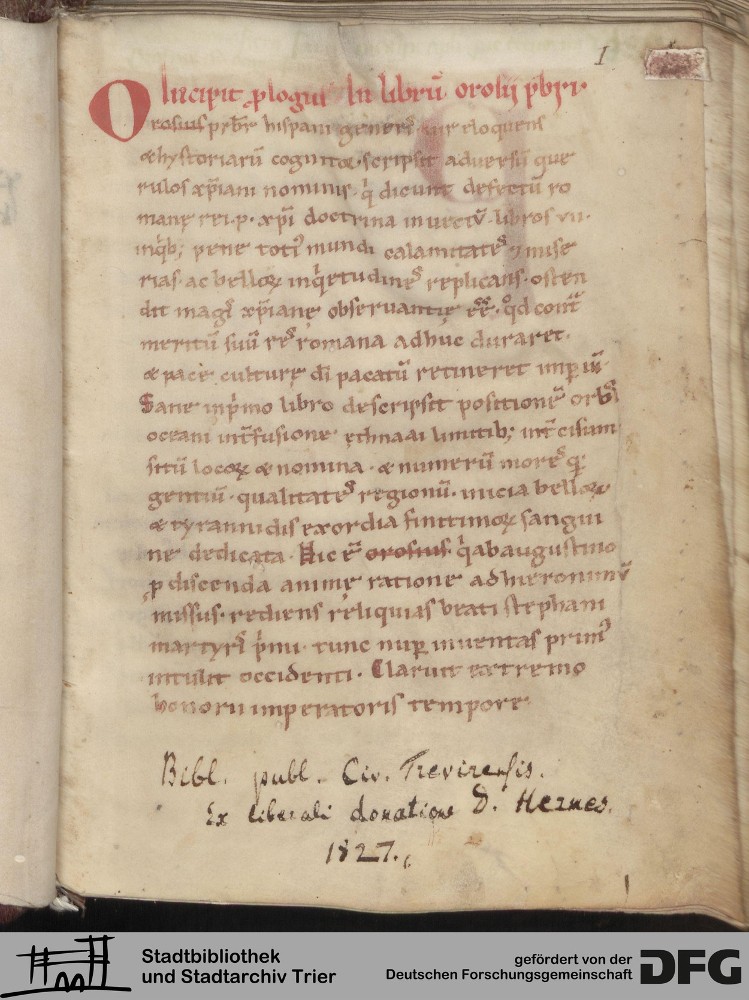 1
Incipit ꝓlogus In librū orosij p̄bꝛi·
Orosius pꝛbr̄ hispani generis vir eloquens
& hystoriarū cognitoꝛ· scripsit adversū que
rulos xp̄iani nominis· q̇ dicunt defectū ro
manę rei·p· xp̄i doctrina invectū· libros vii·
inq̇b; pene toti᾽ mundi calamitates ⁊ mise
rias· ac belloꝝ inq̇etudines replicans· osten
dit magis xp̄ianę observantię eē· qd̊ cont̄
meritū suū res romana adhuc duraret·
& pacē culturę dī pacatū retineret imperiū·
Sane inp̍mo libro descripsit positionē orbis
oceani int̄fusione· &thnaai limitib; int̄cisam
sitū locoꝝ & nomina· & numerū mores q;
gentiū· qualitates regionū· inicia belloꝝ
& tyrannidis exordia finitimoꝝ sangui
ne dedicata· Hic ē orosius q̇ ab augustino
ꝓ discenda animę ratione ad hieronimū
missus· rediens reliquias beati stephani
martyris p̍mi· tunc nuꝑ inventas primus
intulit occidenti· Claruit extremo
honorii imperatoris tempore
Bibl. publ. Civ. Trevirensis.
Ex liberali donatione D. Hermes.
1827.
Stadtbibliothek
und Stadtarchiv Trier
gefördert von der
Deutschen Forschungsgemeinschaft
DFG